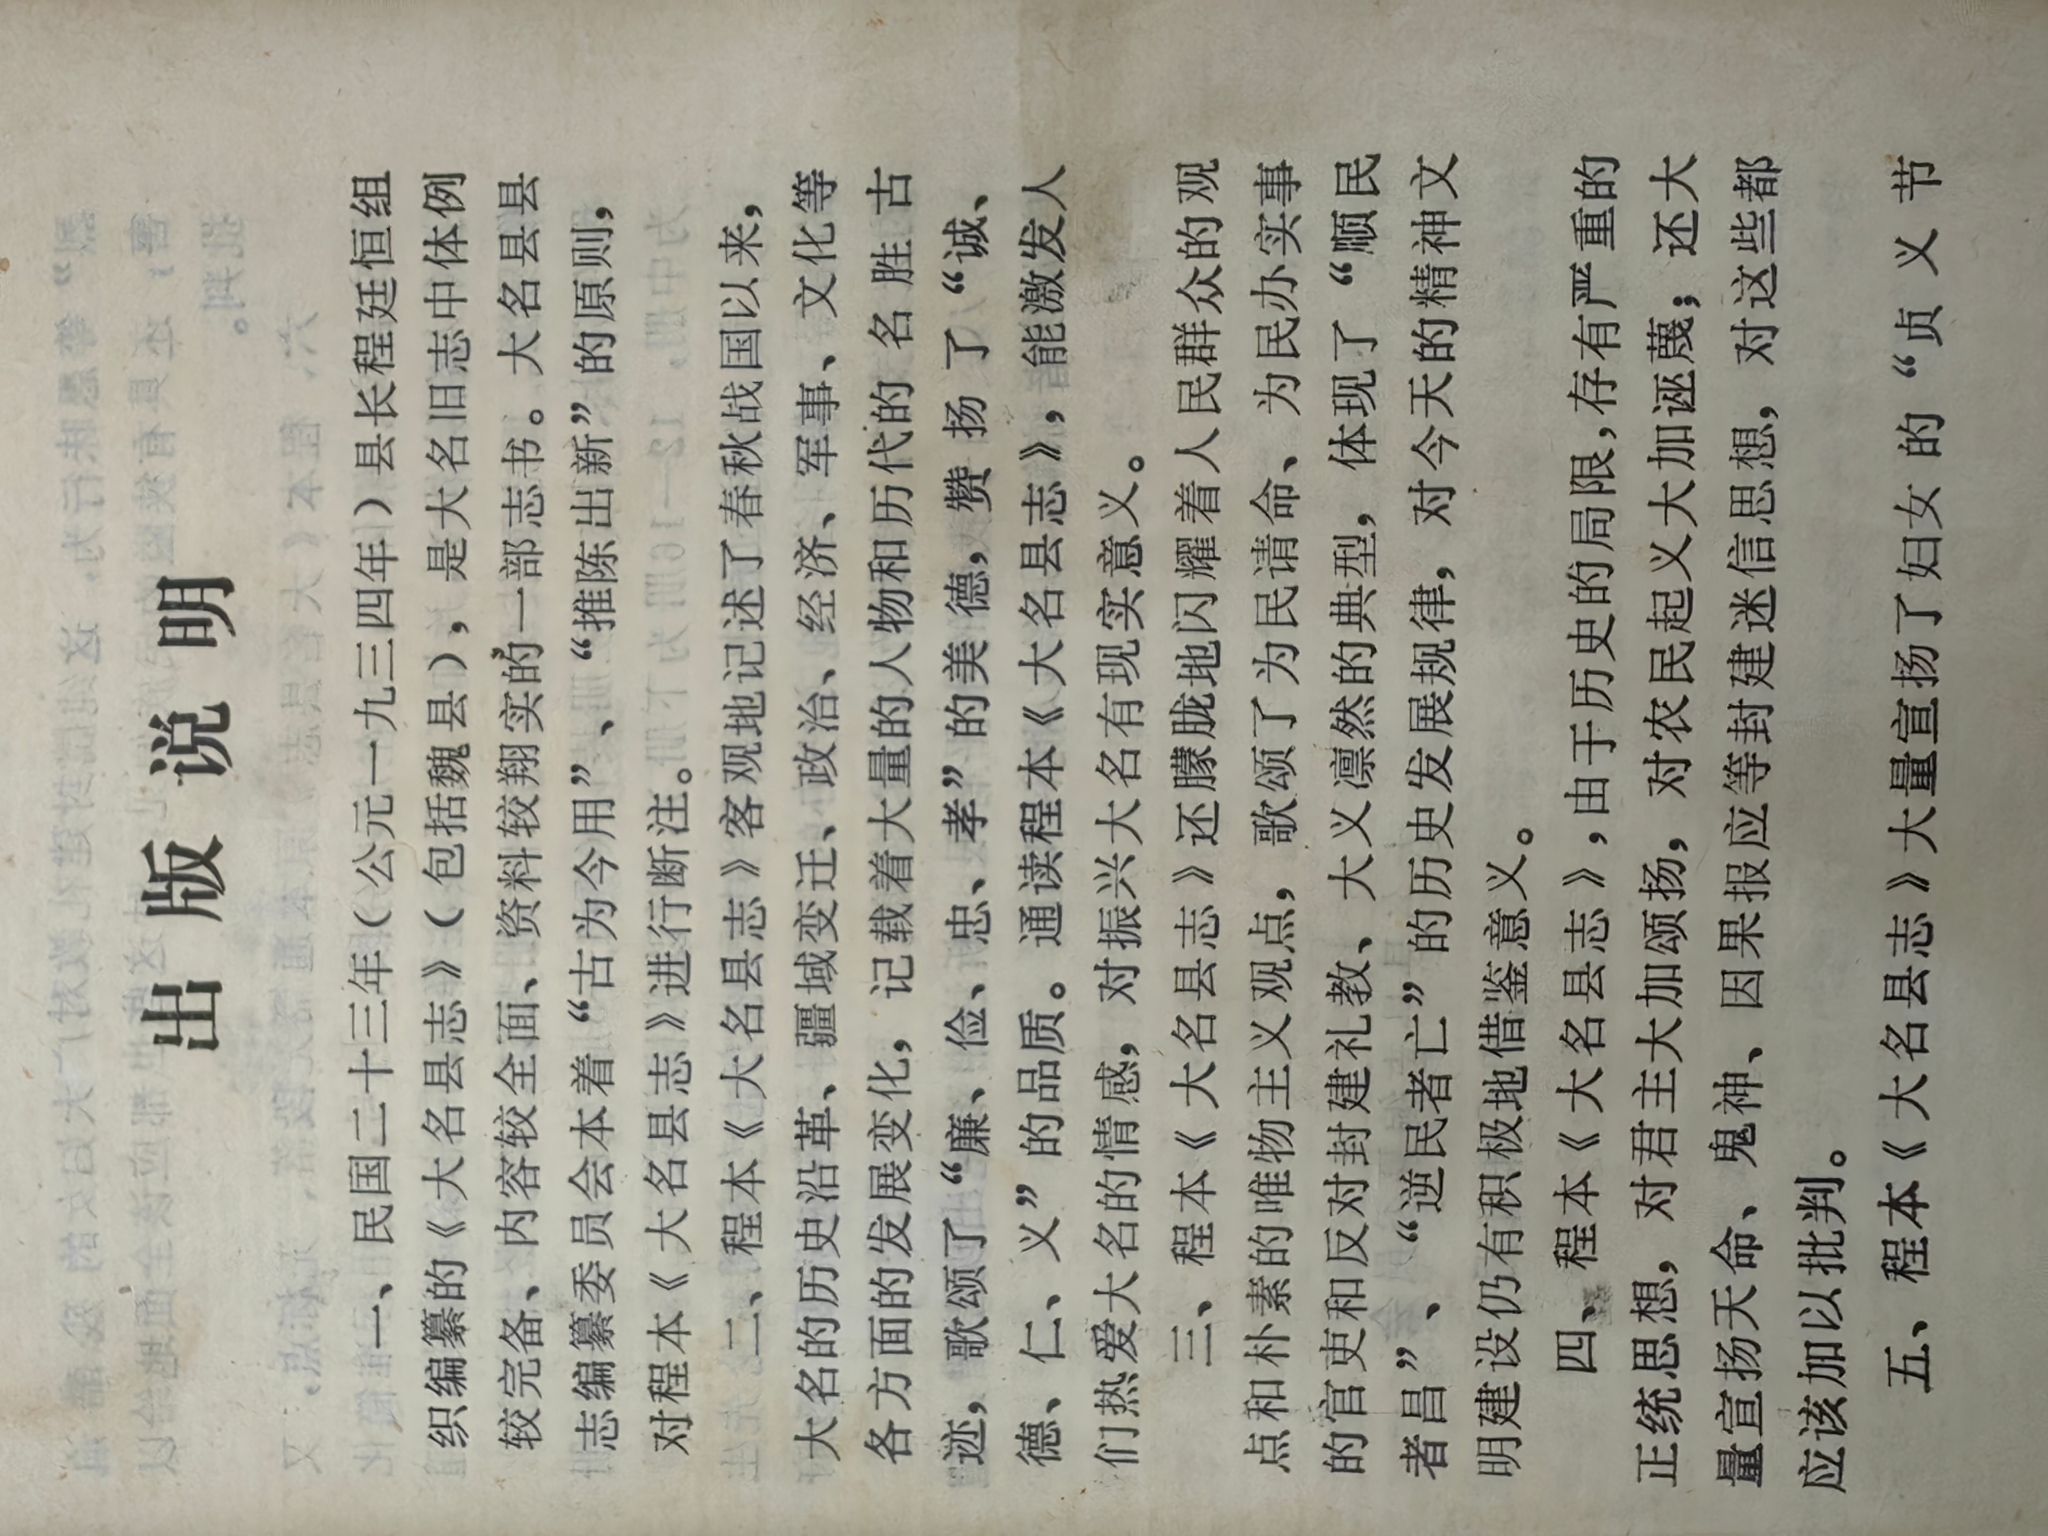 出版说明
一、民国二十三年（公元一九三四年）县长程廷恒组
织编纂的《大名县志》（包括魏县），是大名旧志中体例
较完备、内容较全面、资料较翔实的一部志书。大名县县
志编纂委员会本着“古为今用”、“推陈出新”的原则，
对程本《大名县志》进行断注。
二、程本《大名县志》客观地记述了春秋战国以来，
大名的历史沿革、疆域变迁、政治、经济、军事、文化等
各方面的发展变化，记载着大量的人物和历代的名胜古
迹，歌颂了“廉、俭、忠、孝”的美德，赞扬了“诚、
德、仁、义”的品质。通读程本《大名县志》，能激发人
们热爱大名的情感，对振兴大名有现实意义。
三、程本《大名县志》还朦胧地闪耀着人民群众的观
点和朴素的唯物主义观点，歌颂了为民请命、为民办实事
的官吏和反对封建礼教、大义凛然的典型，体现了“顺民
者昌”、“逆民者亡”的历史发展规律，对今天的精神文
明建设仍有积极地借鉴意义。
四、程本《大名县志》，由于历史的局限，存有严重的
正统思想，对君主大加颂扬，对农民起义大加诬蔑；还大
量宣扬天命、鬼神、因果报应等封建迷信思想，对这些都
应该加以批判。
五、程本《大名县志》大量宣扬了妇女的“贞义节